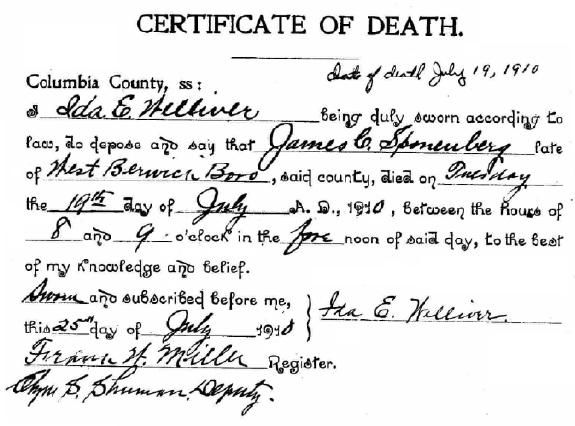 CERTIFICATE OF DEATH.
Date of death July 19, 1910
Columbia County, ss:
I Ida E. Welliver being duly sworn according to
law, do depose and say that James C. Sponenberg late
of West Berwick Boro, said county, died on Tuesday
the 19th day of July A. D., 1910, between the hours of
8 and 9 o'clock in the fore noon of said day, to the best
of my knowledge and belief.
Sworn and subscribed before me,
this 25th day of July 1910
Ida E. Welliver.
Frank W. Miller Register.
Shuman, Deputy.